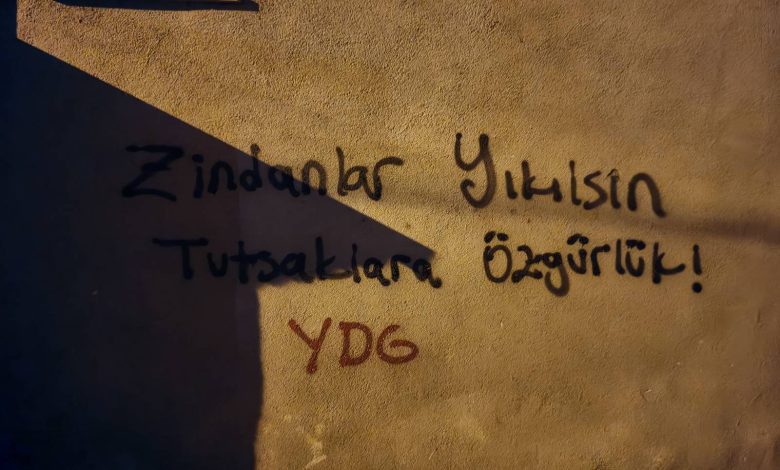 Zindanlar Yıkılsın
Tutsaklara Özgürlük!
YDG